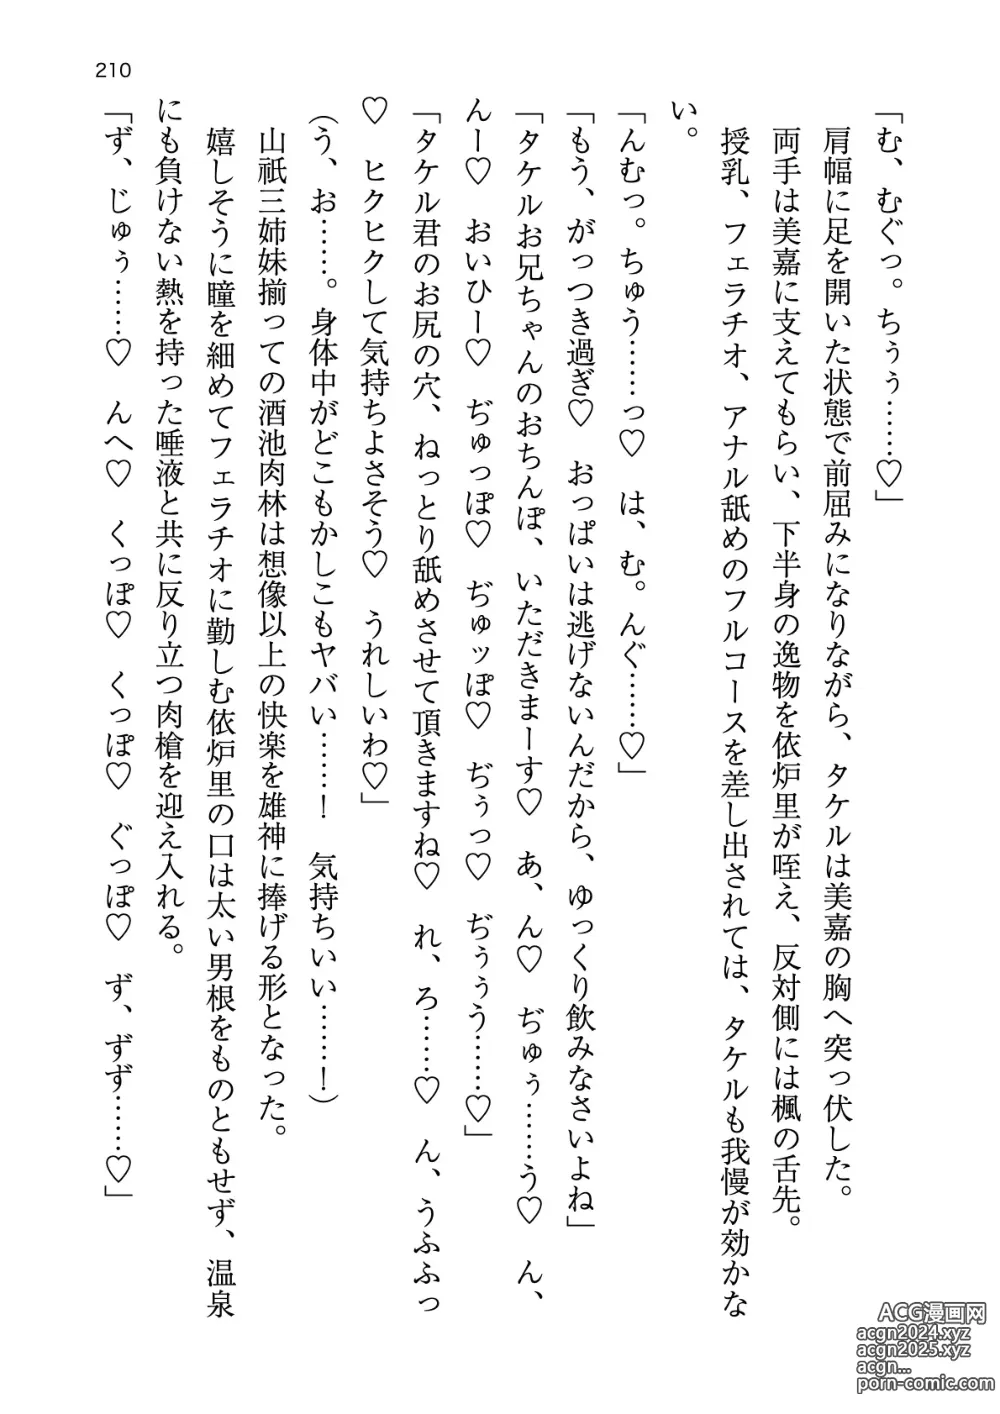 210
「む、むぐっ。ちぅぅ……♡」
肩幅に足を開いた状態で前屈みになりながら、タケルは美嘉の胸へ突っ伏した。
両手は美嘉に支えてもらい、下半身の逸物を依炉里が咥え、反対側には楓の舌先。
授乳、フェラチオ、アナル舐めのフルコースを差し出されては、タケルも我慢が効かな
い。
「んむっ。ちゅう……っ♡　は、む。んぐ……♡」
「もう、がっつき過ぎ♡　おっぱいは逃げないんだから、ゆっくり飲みなさいよね」
「タケルお兄ちゃんのおちんぽ、いただきまーす♡　あ、ん♡　ぢゅぅ……う♡　ん、
んー♡　おいひー♡　ぢゅっぽ♡　ぢゅッぽ♡　ぢぅっ♡　ぢぅぅう……♡」
「タケル君のお尻の穴、ねっとり舐めさせて頂きますね♡　れ、ろ……♡　ん、うふふっ
♡　ヒクヒクして気持ちよさそう♡　うれしいわ♡」
（う、お……。身体中がどこもかしこもヤバい……！　気持ちいい………！）
山祇三姉妹揃っての酒池肉林は想像以上の快楽を雄神に捧げる形となった。
嬉しそうに瞳を細めてフェラチオに勤しむ依炉里の口は太い男根をものともせず、温泉
にも負けない熱を持った唾液と共に反り立つ肉槍を迎え入れる。
「ず、じゅぅ……♡　んへ♡　くっぽ♡　くっぽ♡　ぐっぽ♡　ず、ずず……♡」
ACG漫画网
acgn2024.xyz
acgn2025.xyz
acgn...
porn-comic.com